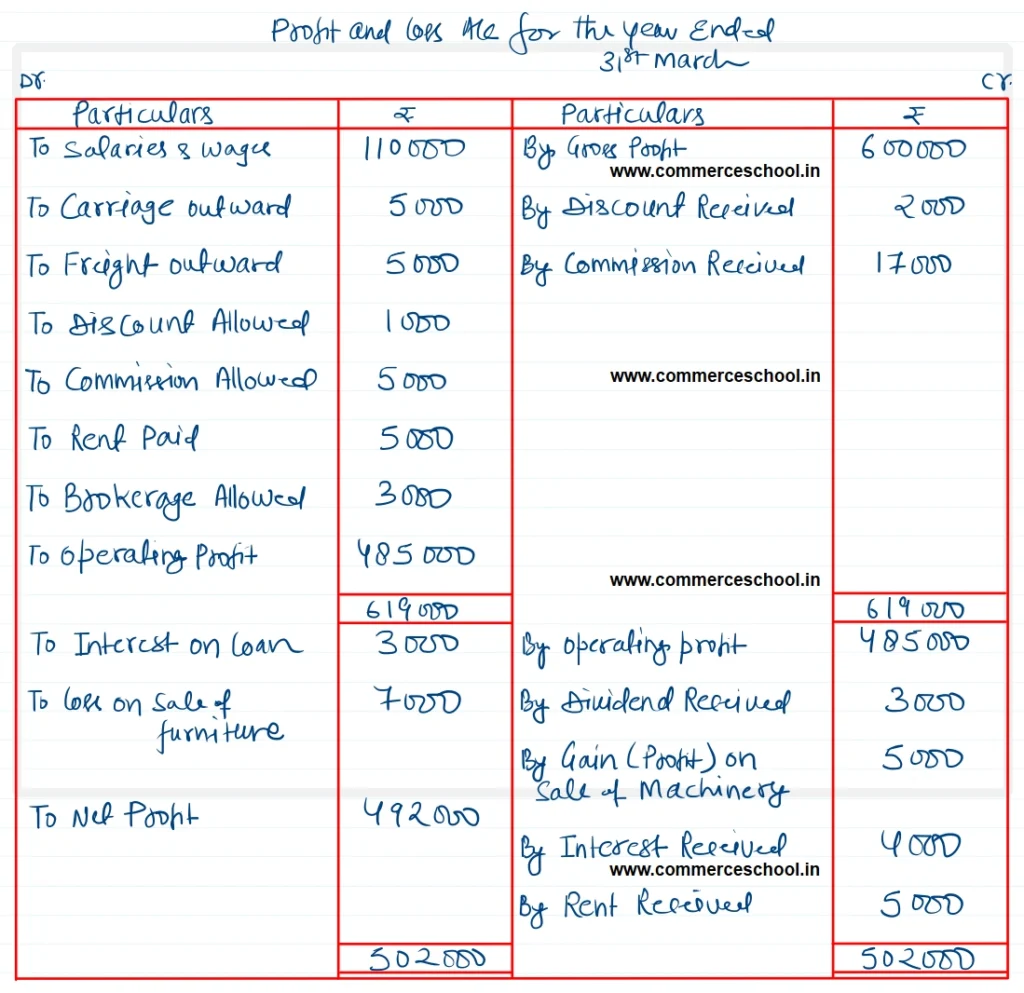 Profit and loss A/c for the year Ended
31st March
Dr. Cr.
Particulars ₹ Particulars ₹
To Salaries & wages 110000 By Gross Profit 600000
www.commerceschool.in
To Carriage outward 5000 By Discount Received 2000
To Freight outward 5000 By Commission Received 17000
To Discount Allowed 1000
To Commission Allowed 5000 www.commerceschool.in
To Rent Paid 5000
To Brokerage Allowed 3000
To Operating Profit 485000
www.commerceschool.in
619000 619000
To Interest on Loan 3000 By Operating profit 485000
To loss on Sale of 7000 By Dividend Received 3000
furniture
By Gain (Profit) on 5000
Sale of Machinery
To Net Profit 492000
By Interest Received 4000
www.commerceschool.in
By Rent Received 5000
502000 502000